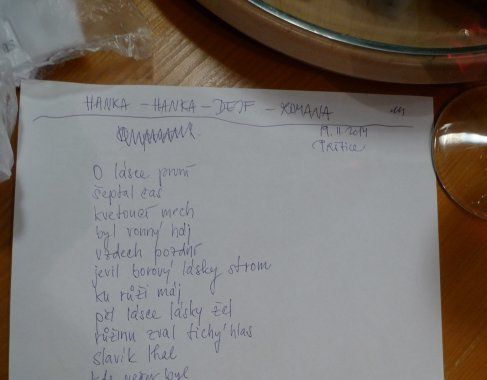 HANKA - HANKA - DEJF - ROMANA
19. 11. 2014
O lásce první
šeptal zas
kvetoucí mech
byl vonný háj
vzdech pozdní
jevil borový lásky strom
ku růži máj
při lásce lásky žel
růžinu zval tichý hlas
slavík lhal
kde
byl